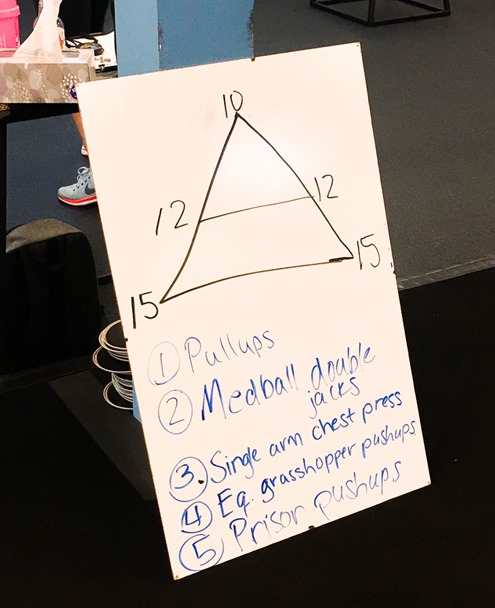 10
12 12
15 15
1 Pullups
2 Medball double
jacks
3. Single arm chest press
4 Eq. grasshopper pushups
5 Prison pushups